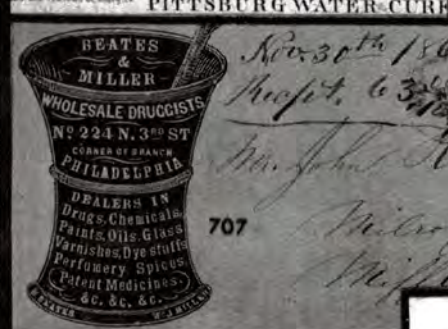 PITTSBURG WATER-CURE
BEATES
&
MILLER
WHOLESALE DRUGGISTS
Nº 224 N. 3RD ST
CORNER OF BRANCH
PHILADELPHIA
DEALERS IN
Drugs, Chemicals,
Paints, Oils, Glass
Varnishes, Dye stuffs
Perfumery Spices
Patent Medicines.
&c. &c. &c.
BEATES W. J. MILLER
Nov. 30th
707
Mr. John